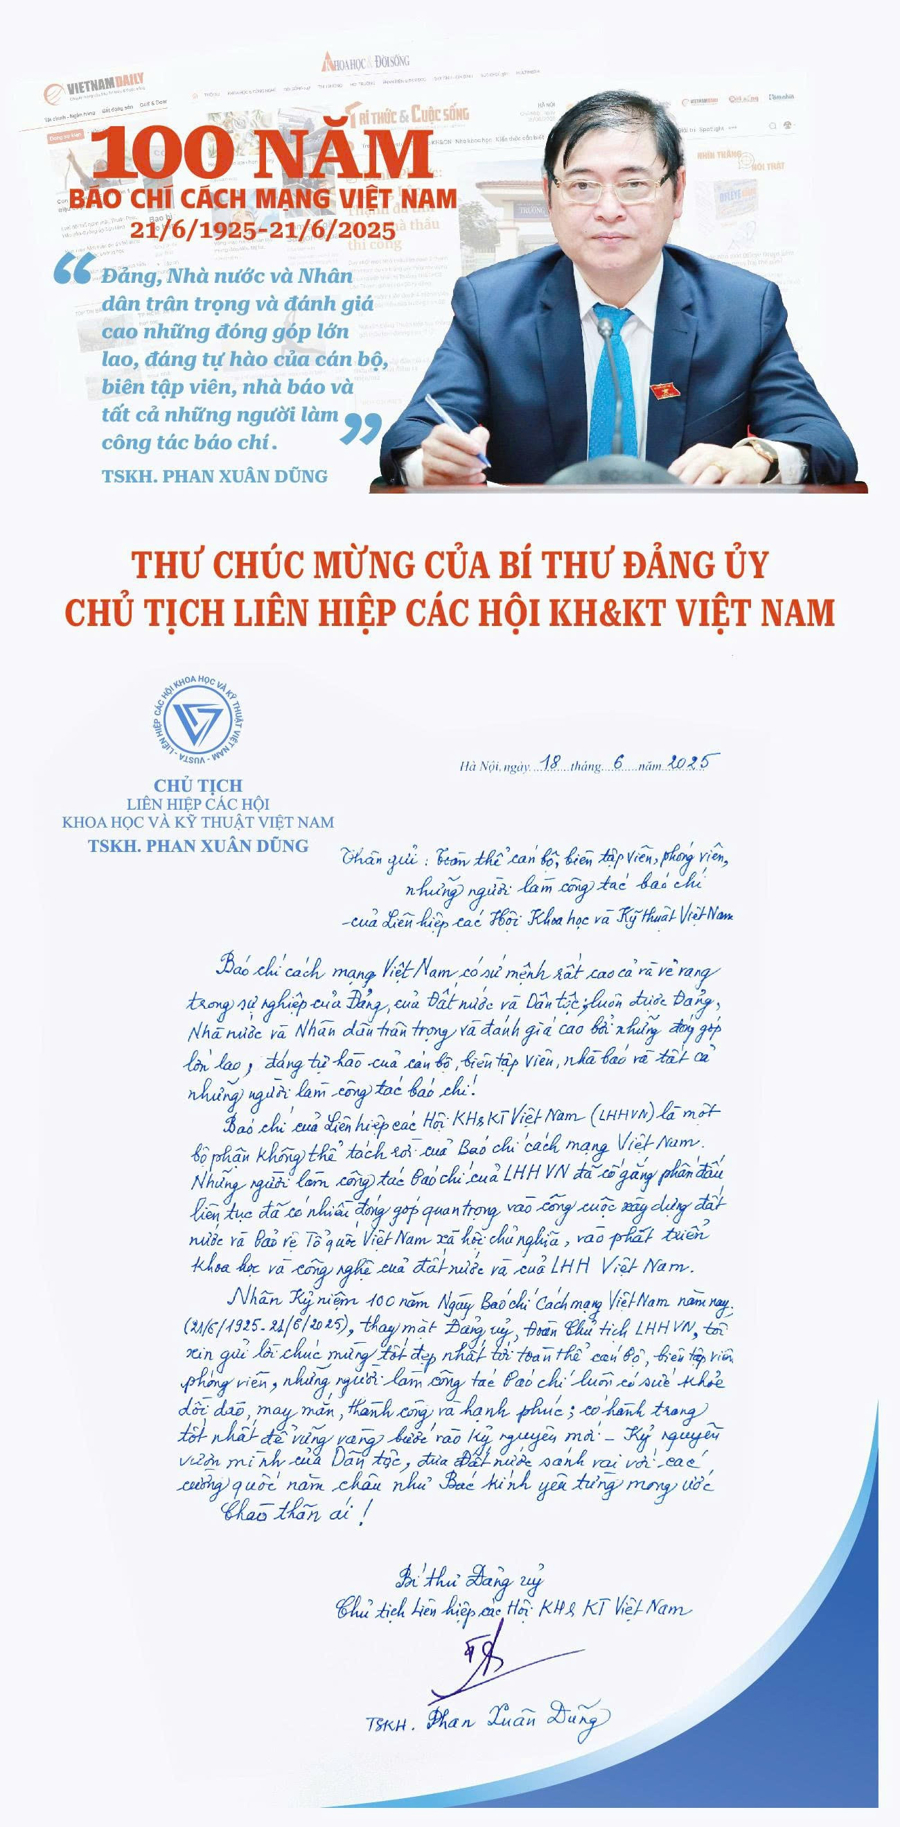 VIETNAMDAILY
KHOA HỌC & ĐỜI SỐNG
TRI THỨC & CUỘC SỐNG
100 NĂM
BÁO CHÍ CÁCH MẠNG VIỆT NAM
21/6/1925-21/6/2025
“ Đảng, Nhà nước và Nhân
dân trân trọng và đánh giá
cao những đóng góp lớn
lao, đáng tự hào của cán bộ,
biên tập viên, nhà báo và
tất cả những người làm
công tác báo chí. ”
TSKH. PHAN XUÂN DŨNG
BOSCH
THƯ CHÚC MỪNG CỦA BÍ THƯ ĐẢNG ỦY
CHỦ TỊCH LIÊN HIỆP CÁC HỘI KH&KT VIỆT NAM
LIÊN HIỆP CÁC HỘI KHOA HỌC VÀ KỸ THUẬT VIỆT NAM - VUSTA -
CHỦ TỊCH
LIÊN HIỆP CÁC HỘI
KHOA HỌC VÀ KỸ THUẬT VIỆT NAM
TSKH. PHAN XUÂN DŨNG
Hà Nội, ngày 18 tháng 6 năm 2025
Thân gửi: Toàn thể cán bộ, biên tập viên, phóng viên,
những người làm công tác báo chí
của Liên hiệp các Hội Khoa học và Kỹ thuật Việt Nam
Báo chí cách mạng Việt Nam có sứ mệnh rất cao cả và vẻ vang
trong sự nghiệp của Đảng, của Đất nước và Dân tộc; luôn được Đảng,
Nhà nước và Nhân dân trân trọng và đánh giá cao bởi những đóng góp
lớn lao, đáng tự hào của cán bộ, biên tập viên, nhà báo và tất cả
những người làm công tác báo chí.
Báo chí của Liên hiệp các Hội KH&KT Việt Nam (LHHVN) là một
bộ phận không thể tách rời của Báo chí cách mạng Việt Nam.
Những người làm công tác báo chí của LHHVN đã cố gắng phấn đấu
liên tục đã có nhiều đóng góp quan trọng vào công cuộc xây dựng đất
nước và bảo vệ Tổ quốc Việt Nam xã hội chủ nghĩa, vào phát triển
khoa học và công nghệ của đất nước và của LHH Việt Nam.
Nhân Kỷ niệm 100 năm Ngày Báo chí Cách mạng Việt Nam năm nay
(21/6/1925-21/6/2025), thay mặt Đảng uỷ, Đoàn Chủ tịch LHHVN, tôi
xin gửi lời chúc mừng tốt đẹp nhất tới toàn thể cán bộ, biên tập viên
phóng viên, những người làm công tác báo chí luôn có sức khỏe
dồi dào, may mắn, thành công và hạnh phúc; có hành trang
tốt nhất để vững vàng bước vào kỷ nguyên mới - Kỷ nguyên
vươn mình của Dân tộc, đưa Đất nước sánh vai với các
cường quốc năm châu như Bác kính yêu từng mong ước
Chào thân ái!
Bí thư Đảng uỷ
Chủ tịch Liên hiệp các Hội KH& KT Việt Nam
TSKH. Phan Xuân Dũng